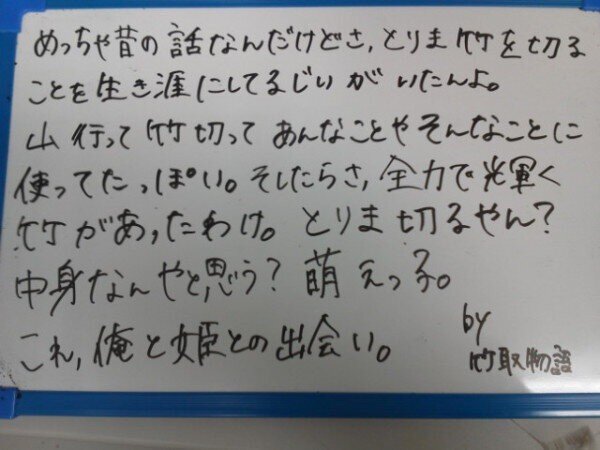 めっちゃ昔の話なんだけどさ,とりま竹を切る
ことを生き涯にしてるじいがいたんよ。
山行って竹切ってあんなことやそんなことに
使ってたっぽい。そしたらさ,全力で光輝く
竹があったわけ。とりま切るやん?
中身なんやと思う?萌えっ子。
これ,俺と姫との出会い。
by
竹取物語